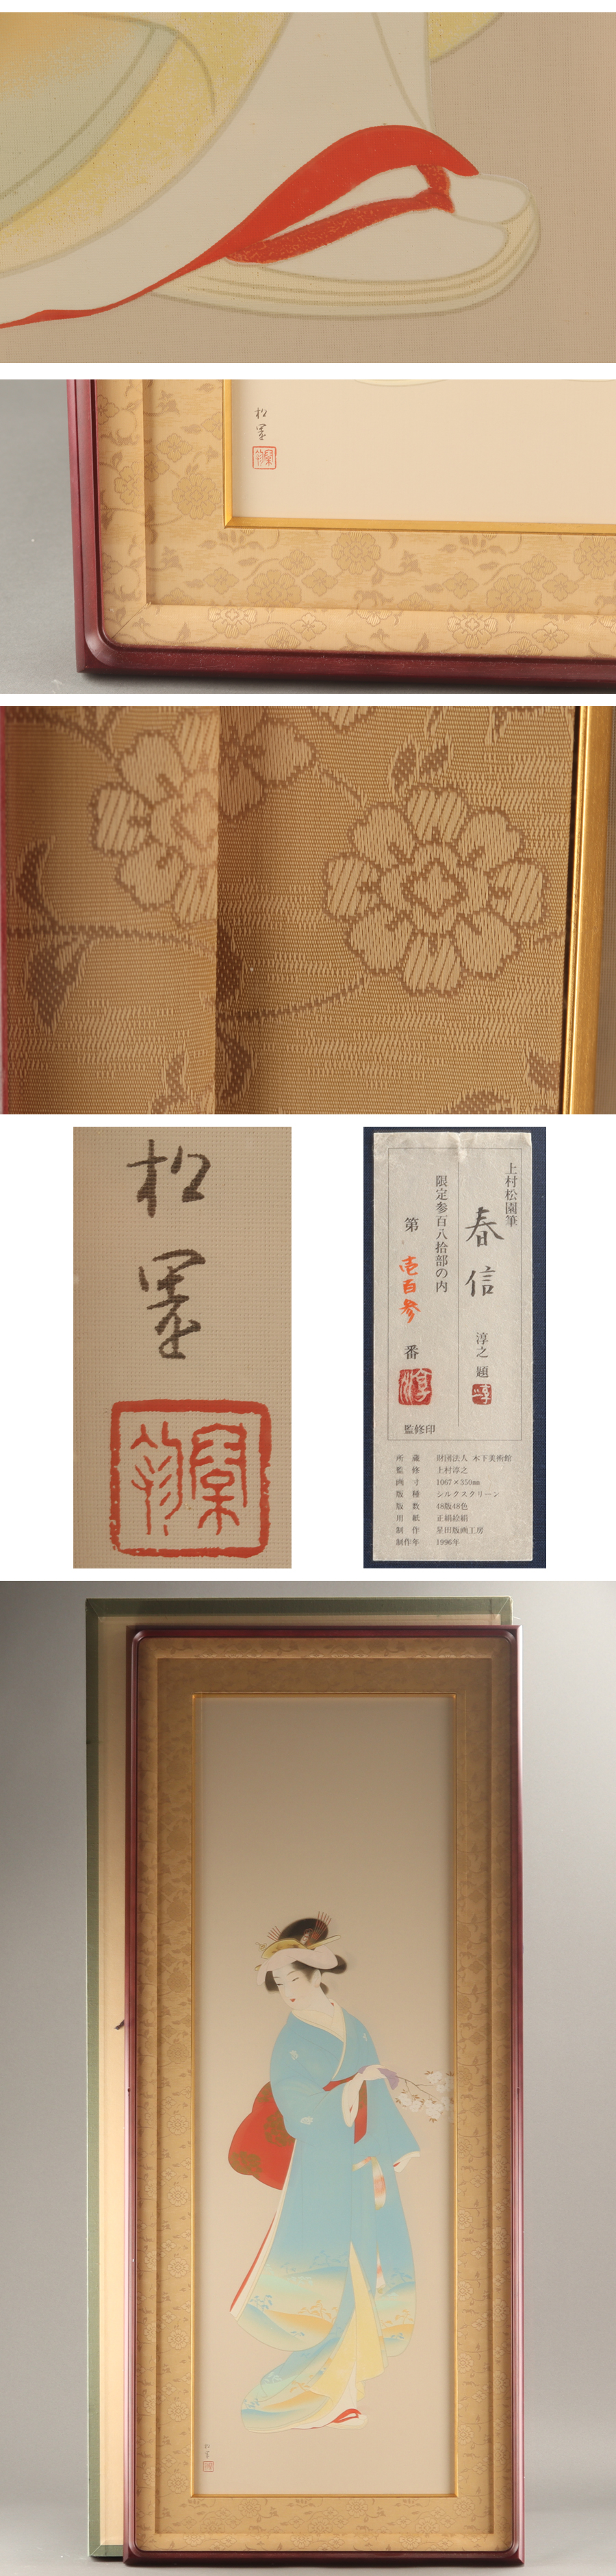 松
園
松
園
上村松園筆
春信
淳之 題
限定参百八拾部の内
第 壱百参 番
監修印
所 蔵 財団法人 木下美術館
監 修 上村淳之
画 寸 1067×350㎜
版 種 シルクスクリーン
版 数 48版48色
用 紙 正絹絵絹
制 作 星田版画工房
制作年 1996年
松
園